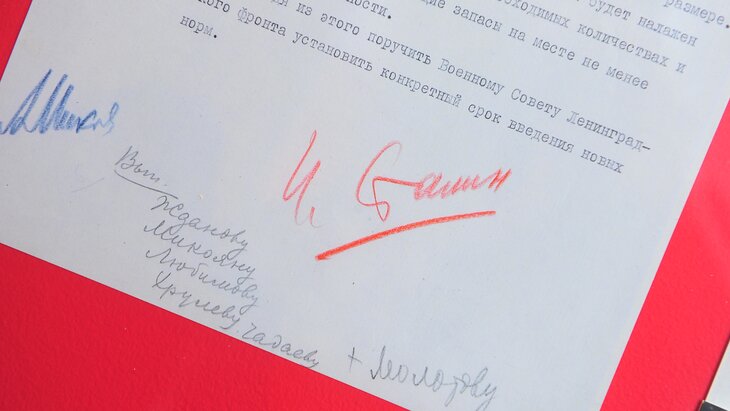 будет налажен
размере.
ности.
обходимых количествах и
щие запасы на месте не менее
из этого поручить Военному Совету Ленинград-
кого фронта установить конкретный срок введения новых
норм.
И. Сталин
Вып.
Жданову
Микояну
Любимову
Хрулеву, Чадаеву
+ Молотову